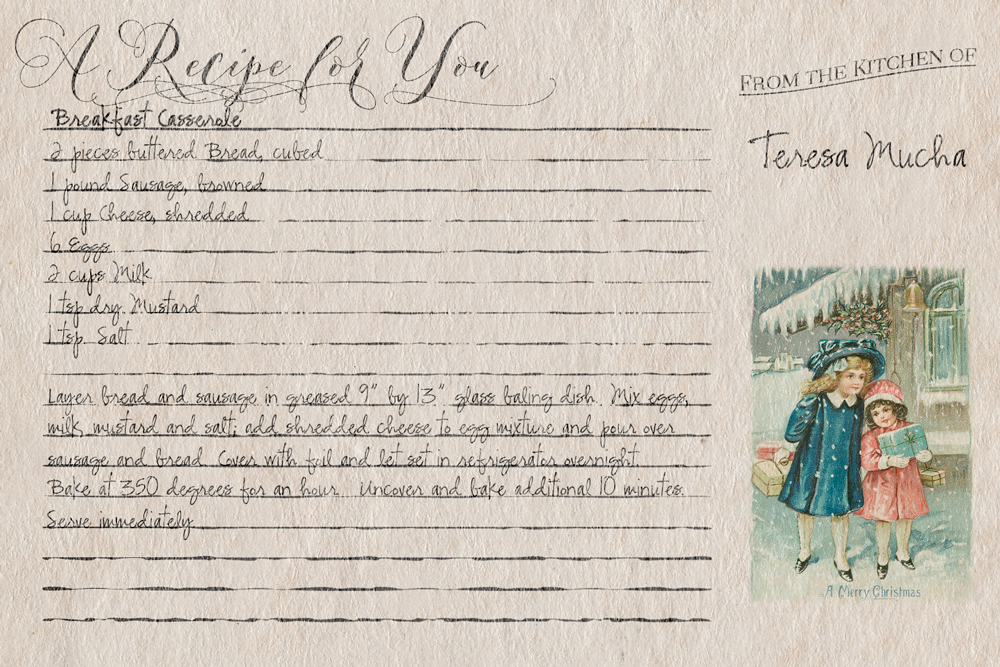 A Recipe for You
FROM THE KITCHEN OF
Teresa Mucha
Breakfast Casserole
2 pieces buttered Bread, cubed
1 pound Sausage, browned
1 cup Cheese, shredded
6 Eggs
2 cups Milk
1 tsp dry Mustard
1 tsp. Salt
Layer bread and sausage in greased 9" by 13" glass baling dish. Mix eggs,
milk, mustard and salt; add shredded cheese to egg mixture and pour over
sausage and bread. Cover with foil and let set in refrigerator overnight.
Bake at 350 degrees for an hour. Uncover and bake additional 10 minutes.
Serve immediately
A Merry Christmas